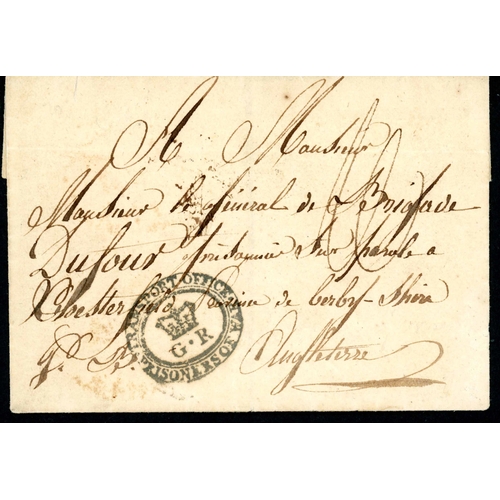 A Monsieur
Monsieur le Général de Brigade
Dufour prisonnier sur parole a
Chesterfield de berby-Shire
Angleterre
TRANSPORT OFFICE
G·R
PRISONERS OF WAR